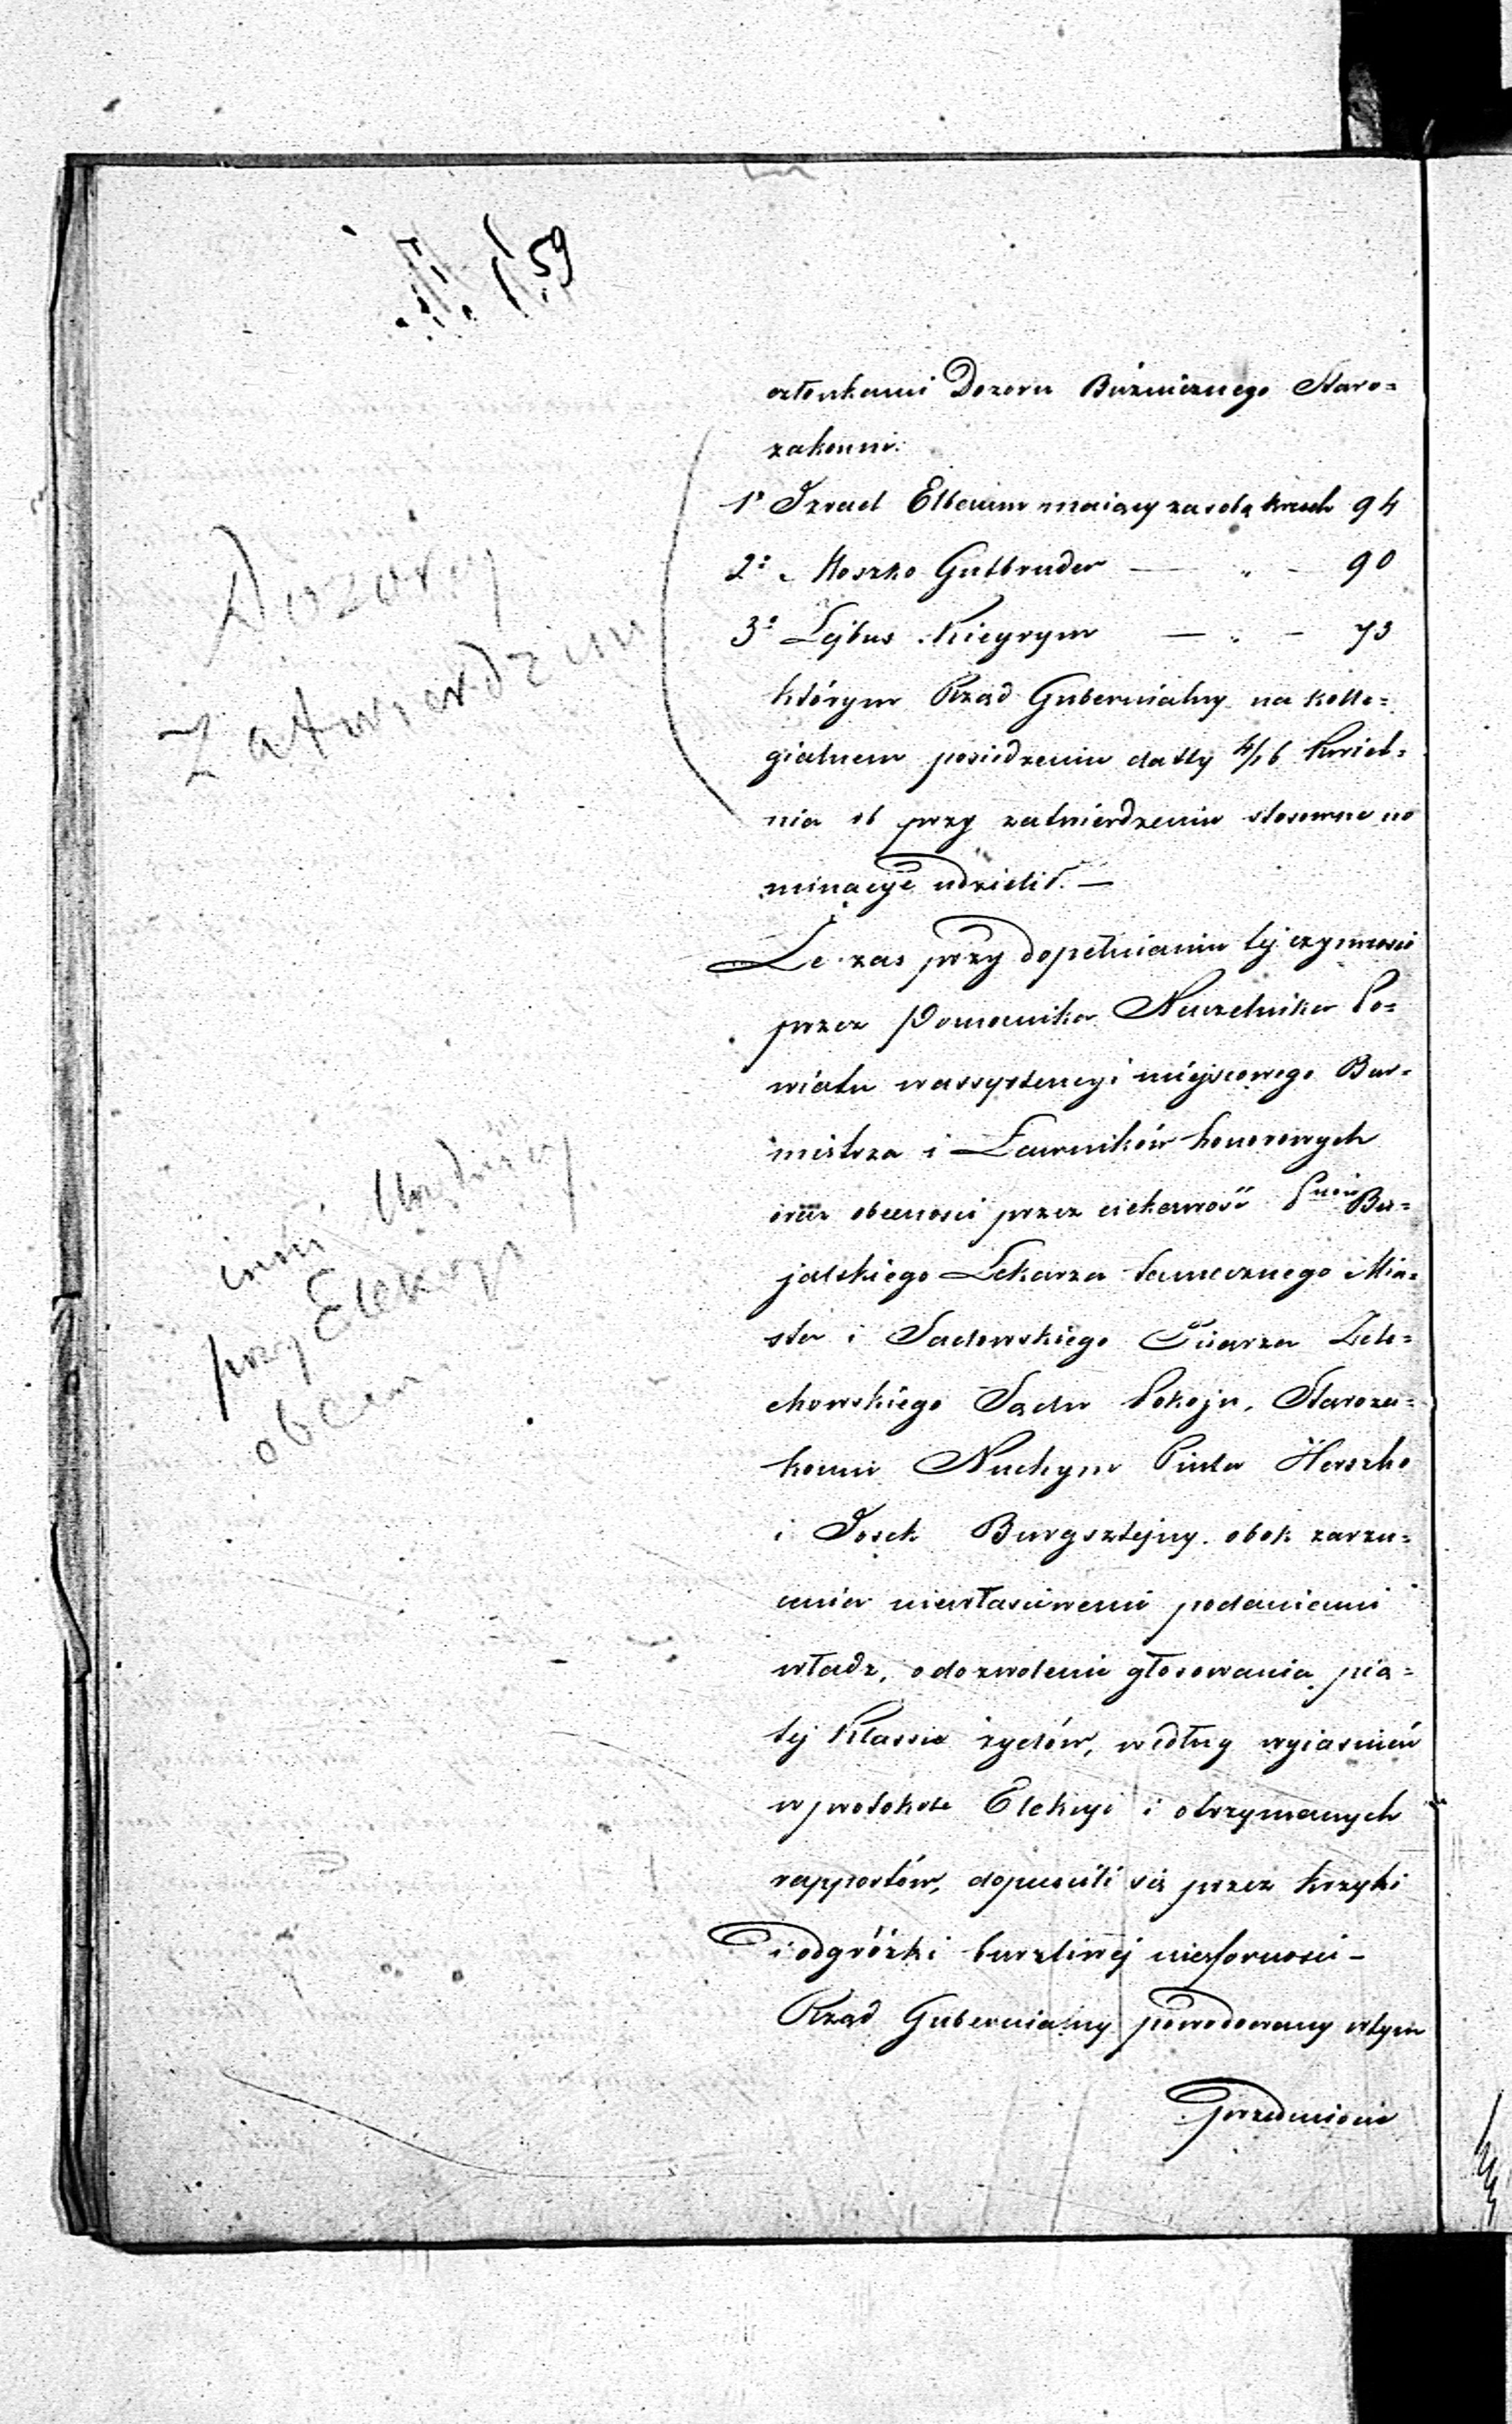 59
członkami Dozoru Bużnicznego Staro=
zakonni:
1º Izrael Elbaum maiący za sobą kresek 94
2º Moszko Gutbruder — „ — 90
3º Lejbus — „ — 73
którym Rząd Gubernialny na kolle=
gialnem posiedzeniu datty 4/16 Kwiet=
nia rb przy zatwierdzeniu stosowne no
minacye udzielił. —
Że zas przy dopełnianiu tej czynności
przez Pomocnika Naczelnika Po=
wiatu w assystencyi miejscowego Bur=
mistrza i Ławników honorowych
oraz obecności przez ciekawość Bu=
jalskiego Lekarza tamecznego Mia=
sta i Sadowskiego Pisarza Żele=
chowskiego Sądu Pokoju, Staroza=
konni Nuchym Pinta Herszko
i Josek Burgsztejny obok zarzu=
cania niewłasciwemi podaniami
władz, o dozwolenie głosowania pią=
tej Klassie żydów, według wyiasnień
w protokole Elekcyi i otrzymanych
rapportów, dopuścili się przez krzyki
i odgróżki burzliwéj niesforności —
Rząd Gubernialny powodowany w tym
przedmiocie
Dozory
Zatwierdzeni
inni
przy Elekcyi
obecni